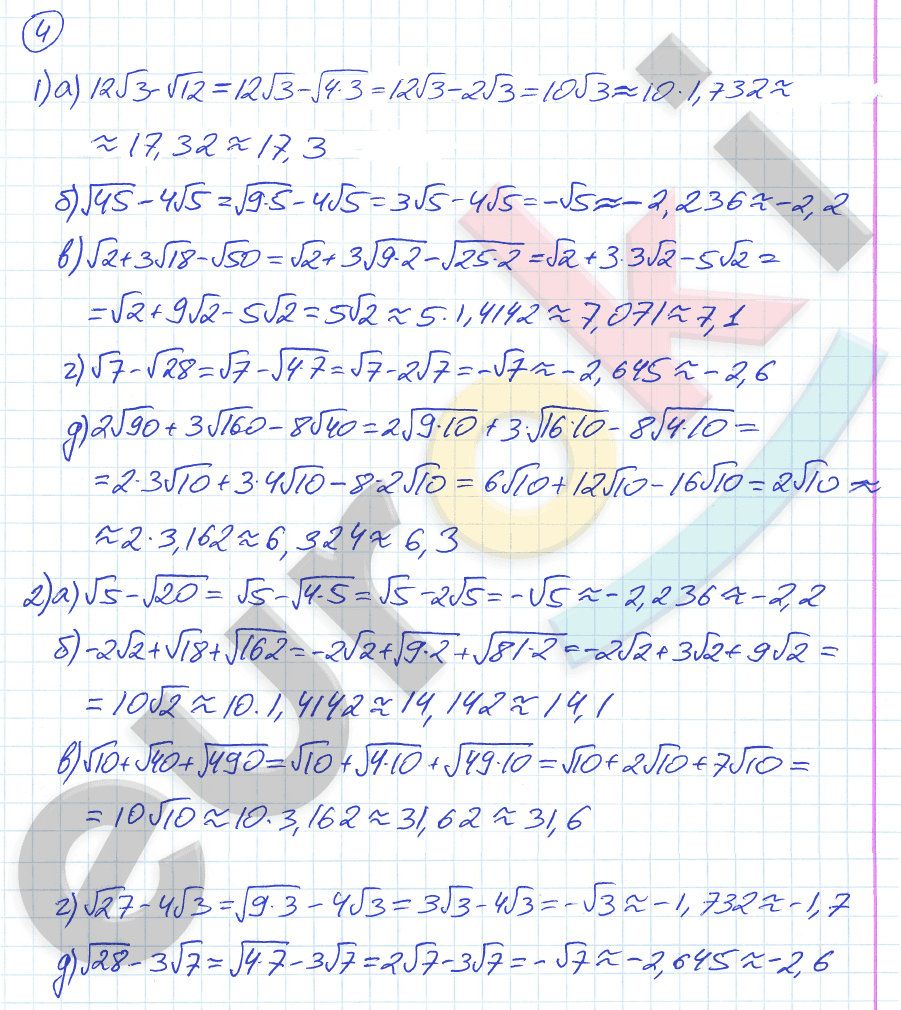 4
1) а) 12√3 - √12 = 12√3 - √4·3 = 12√3 - 2√3 = 10√3 ≈ 10·1,732 ≈
≈ 17,32 ≈ 17,3
б) √45 - 4√5 = √9·5 - 4√5 = 3√5 - 4√5 = -√5 ≈ -2,236 ≈ -2,2
в) √2 + 3√18 - √50 = √2 + 3√9·2 - √25·2 = √2 + 3·3√2 - 5√2 =
= √2 + 9√2 - 5√2 = 5√2 ≈ 5·1,4142 ≈ 7,071 ≈ 7,1
г) √7 - √28 = √7 - √4·7 = √7 - 2√7 = -√7 ≈ -2,645 ≈ -2,6
д) 2√90 + 3√160 - 8√40 = 2√9·10 + 3·√16·10 - 8√4·10 =
= 2·3√10 + 3·4√10 - 8·2√10 = 6√10 + 12√10 - 16√10 = 2√10 ≈
≈ 2·3,162 ≈ 6,324 ≈ 6,3
2) а) √5 - √20 = √5 - √4·5 = √5 - 2√5 = -√5 ≈ -2,236 ≈ -2,2
б) -2√2 + √18 + √162 = -2√2 + √9·2 + √81·2 = -2√2 + 3√2 + 9√2 =
= 10√2 ≈ 10·1,4142 ≈ 14,142 ≈ 14,1
в) √10 + √40 + √490 = √10 + √4·10 + √49·10 = √10 + 2√10 + 7√10 =
= 10√10 ≈ 10·3,162 ≈ 31,62 ≈ 31,6
г) √27 - 4√3 = √9·3 - 4√3 = 3√3 - 4√3 = -√3 ≈ -1,732 ≈ -1,7
д) √28 - 3√7 = √4·7 - 3√7 = 2√7 - 3√7 = -√7 ≈ -2,645 ≈ -2,6
euroki